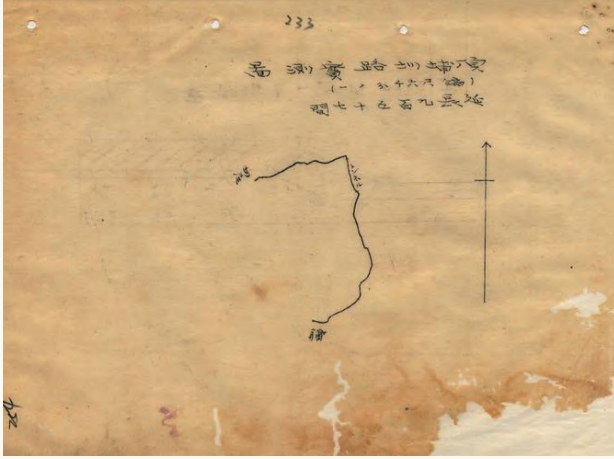 233
頂埔圳路實測圖
(縮尺六千分ノ一)
延長九百五十七間